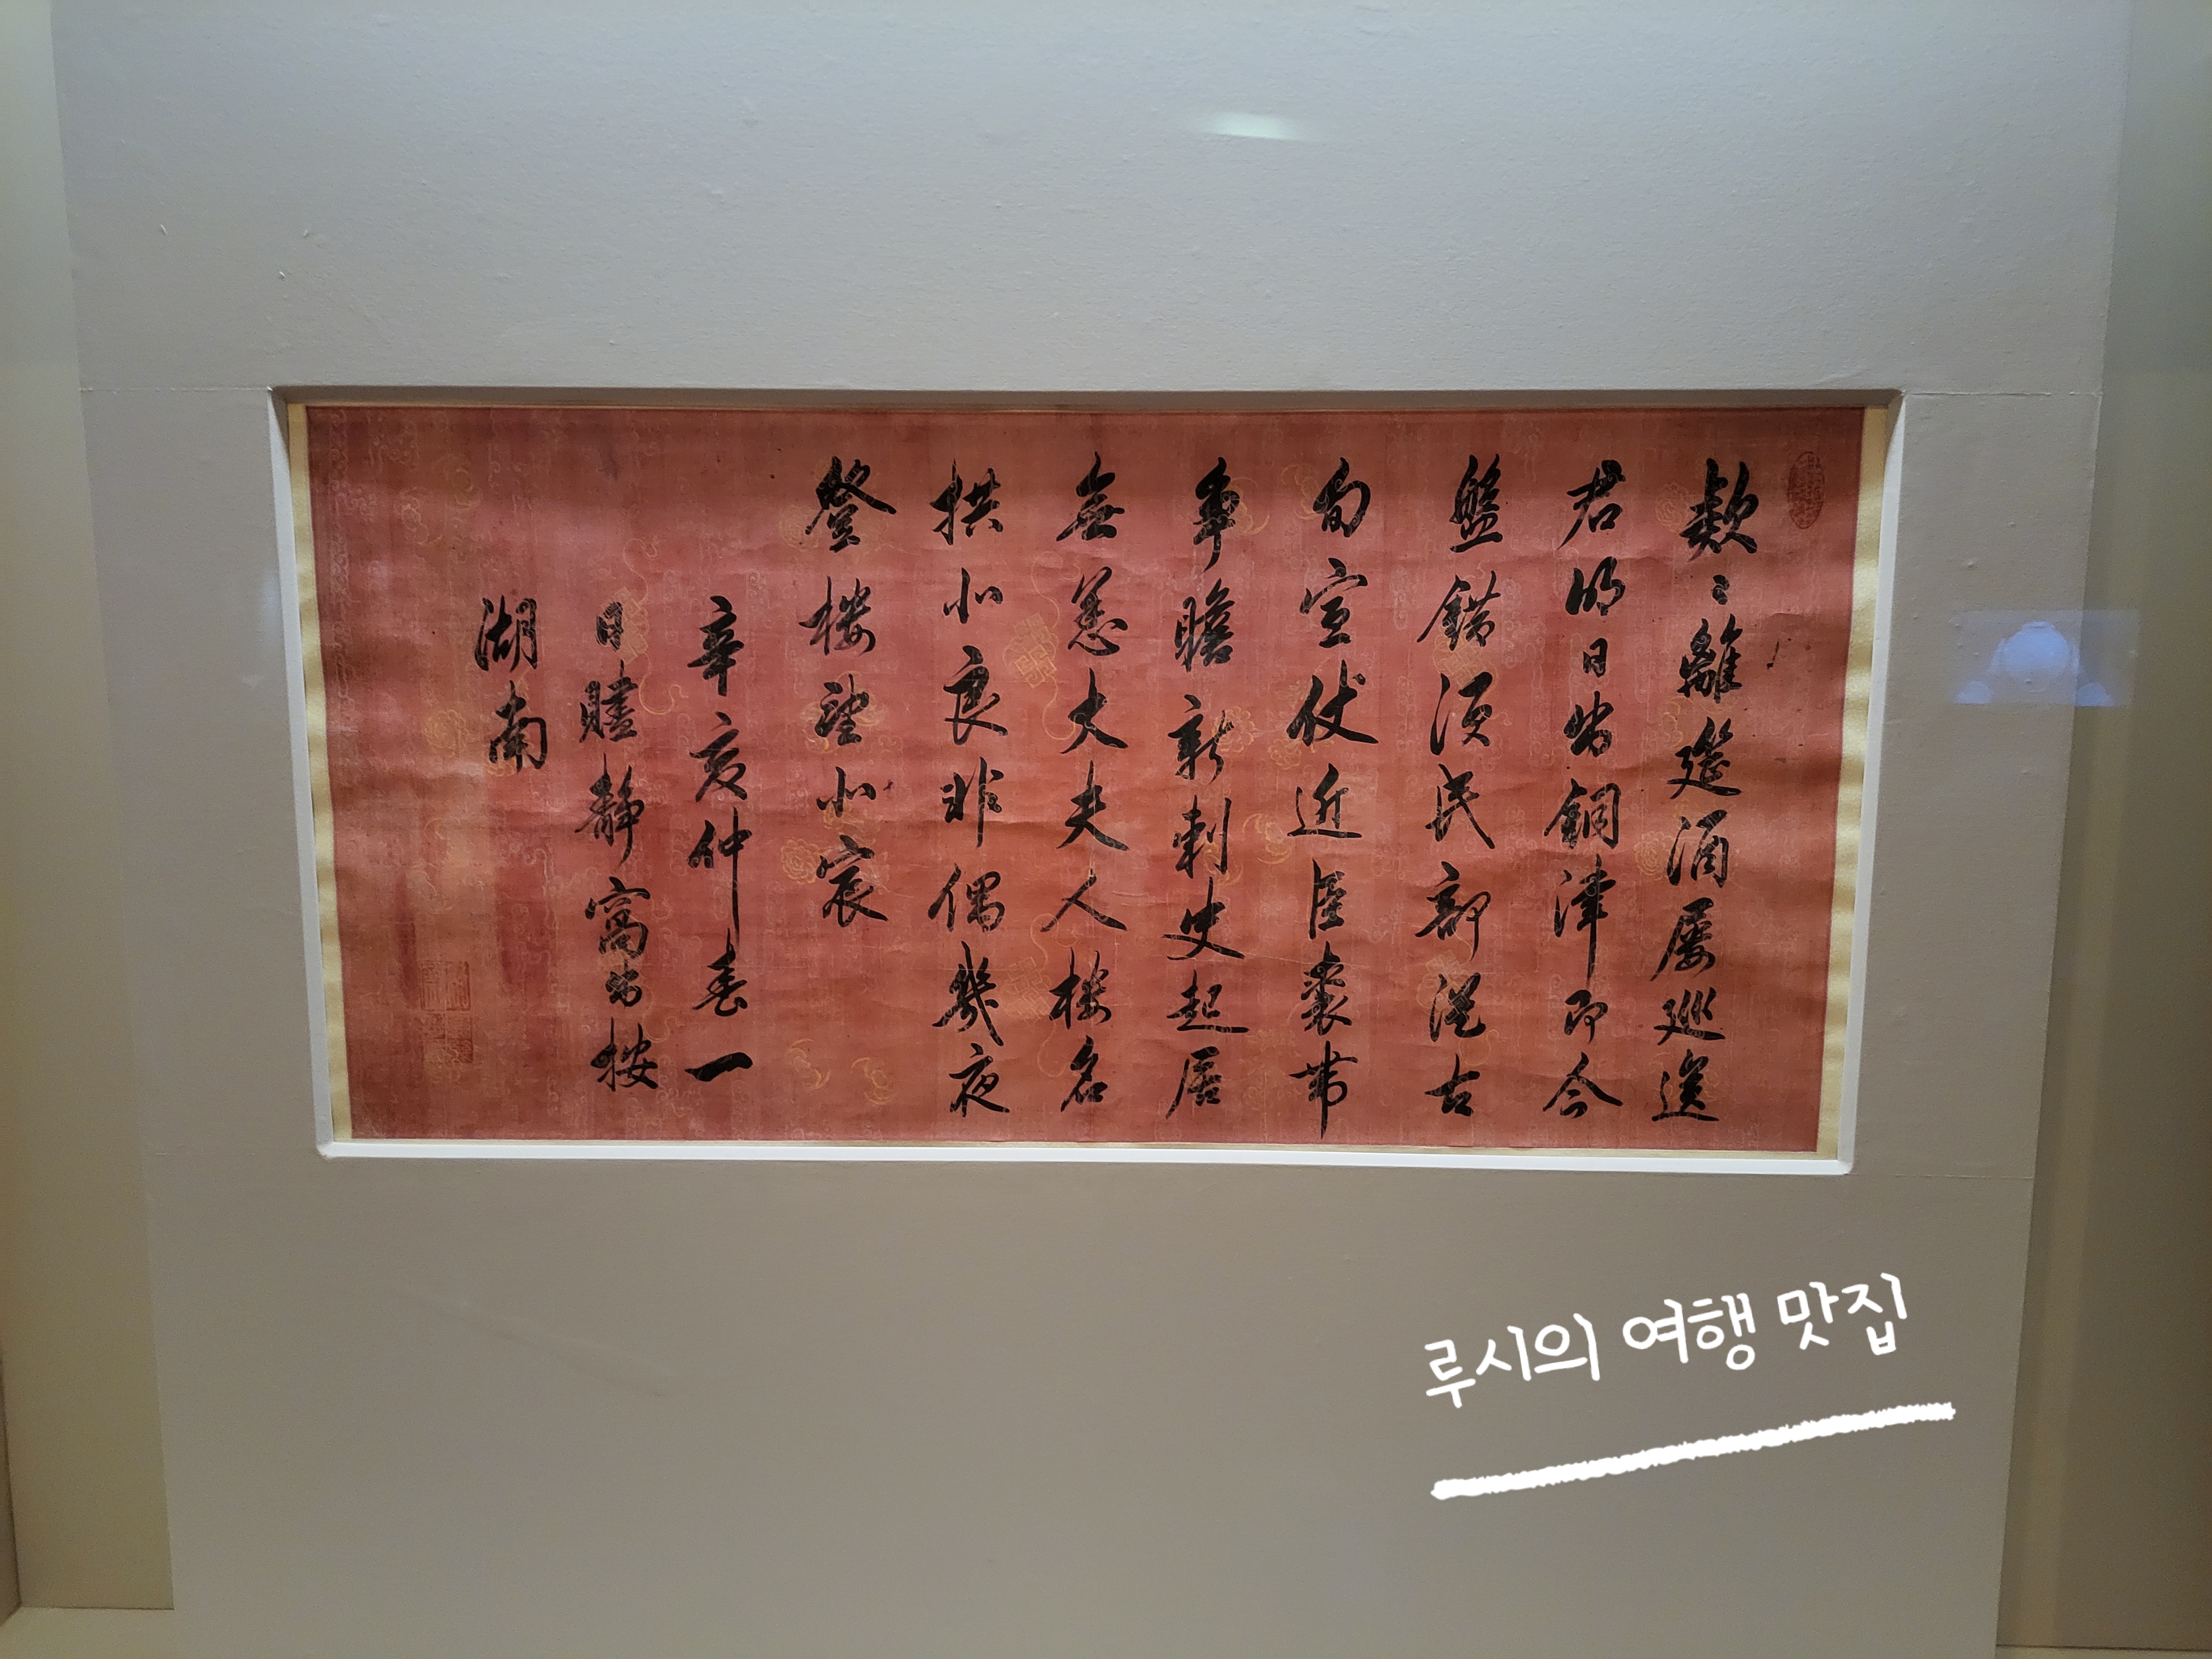 欵〻離筵酒屢巡送
君明日出銅津即今
盤錯須民部從古
旬宣仗近臣裘帶
爭瞻新刺史起居
無恙大夫人樓名
拱北良非偶幾夜
登樓望北宸
辛亥仲春一
日贐靜窩出按
湖南
루시의 여행 맛집